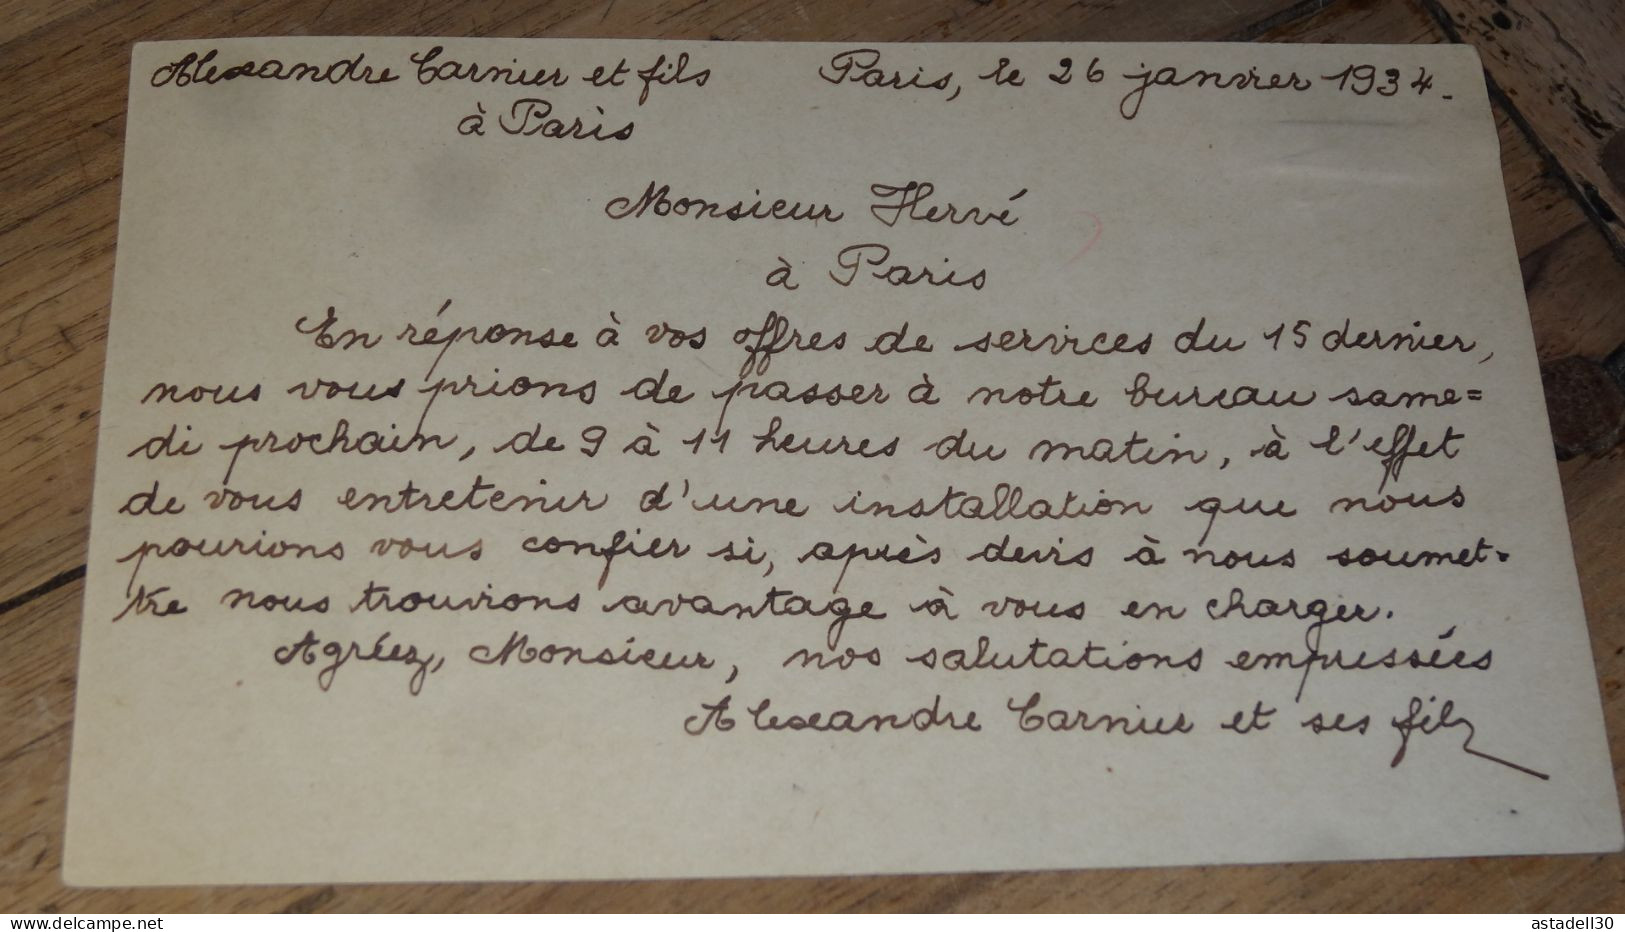 Alexandre Carnier et fils Paris, le 26 janvier 1934.
à Paris
Monsieur Hervé
à Paris
En réponse à vos offres de services du 15 dernier,
nous vous prions de passer à notre bureau same=
di prochain, de 9 à 11 heures du matin, à l'effet
de vous entretenir d'une installation que nous
pourions vous confier si, après devis à nous soumet-
tre nous trouvions avantage à vous en charger.
Agréez, Monsieur, nos salutations empressées
Alexandre Carnier et ses fils
www.delcampe.net
astadell30